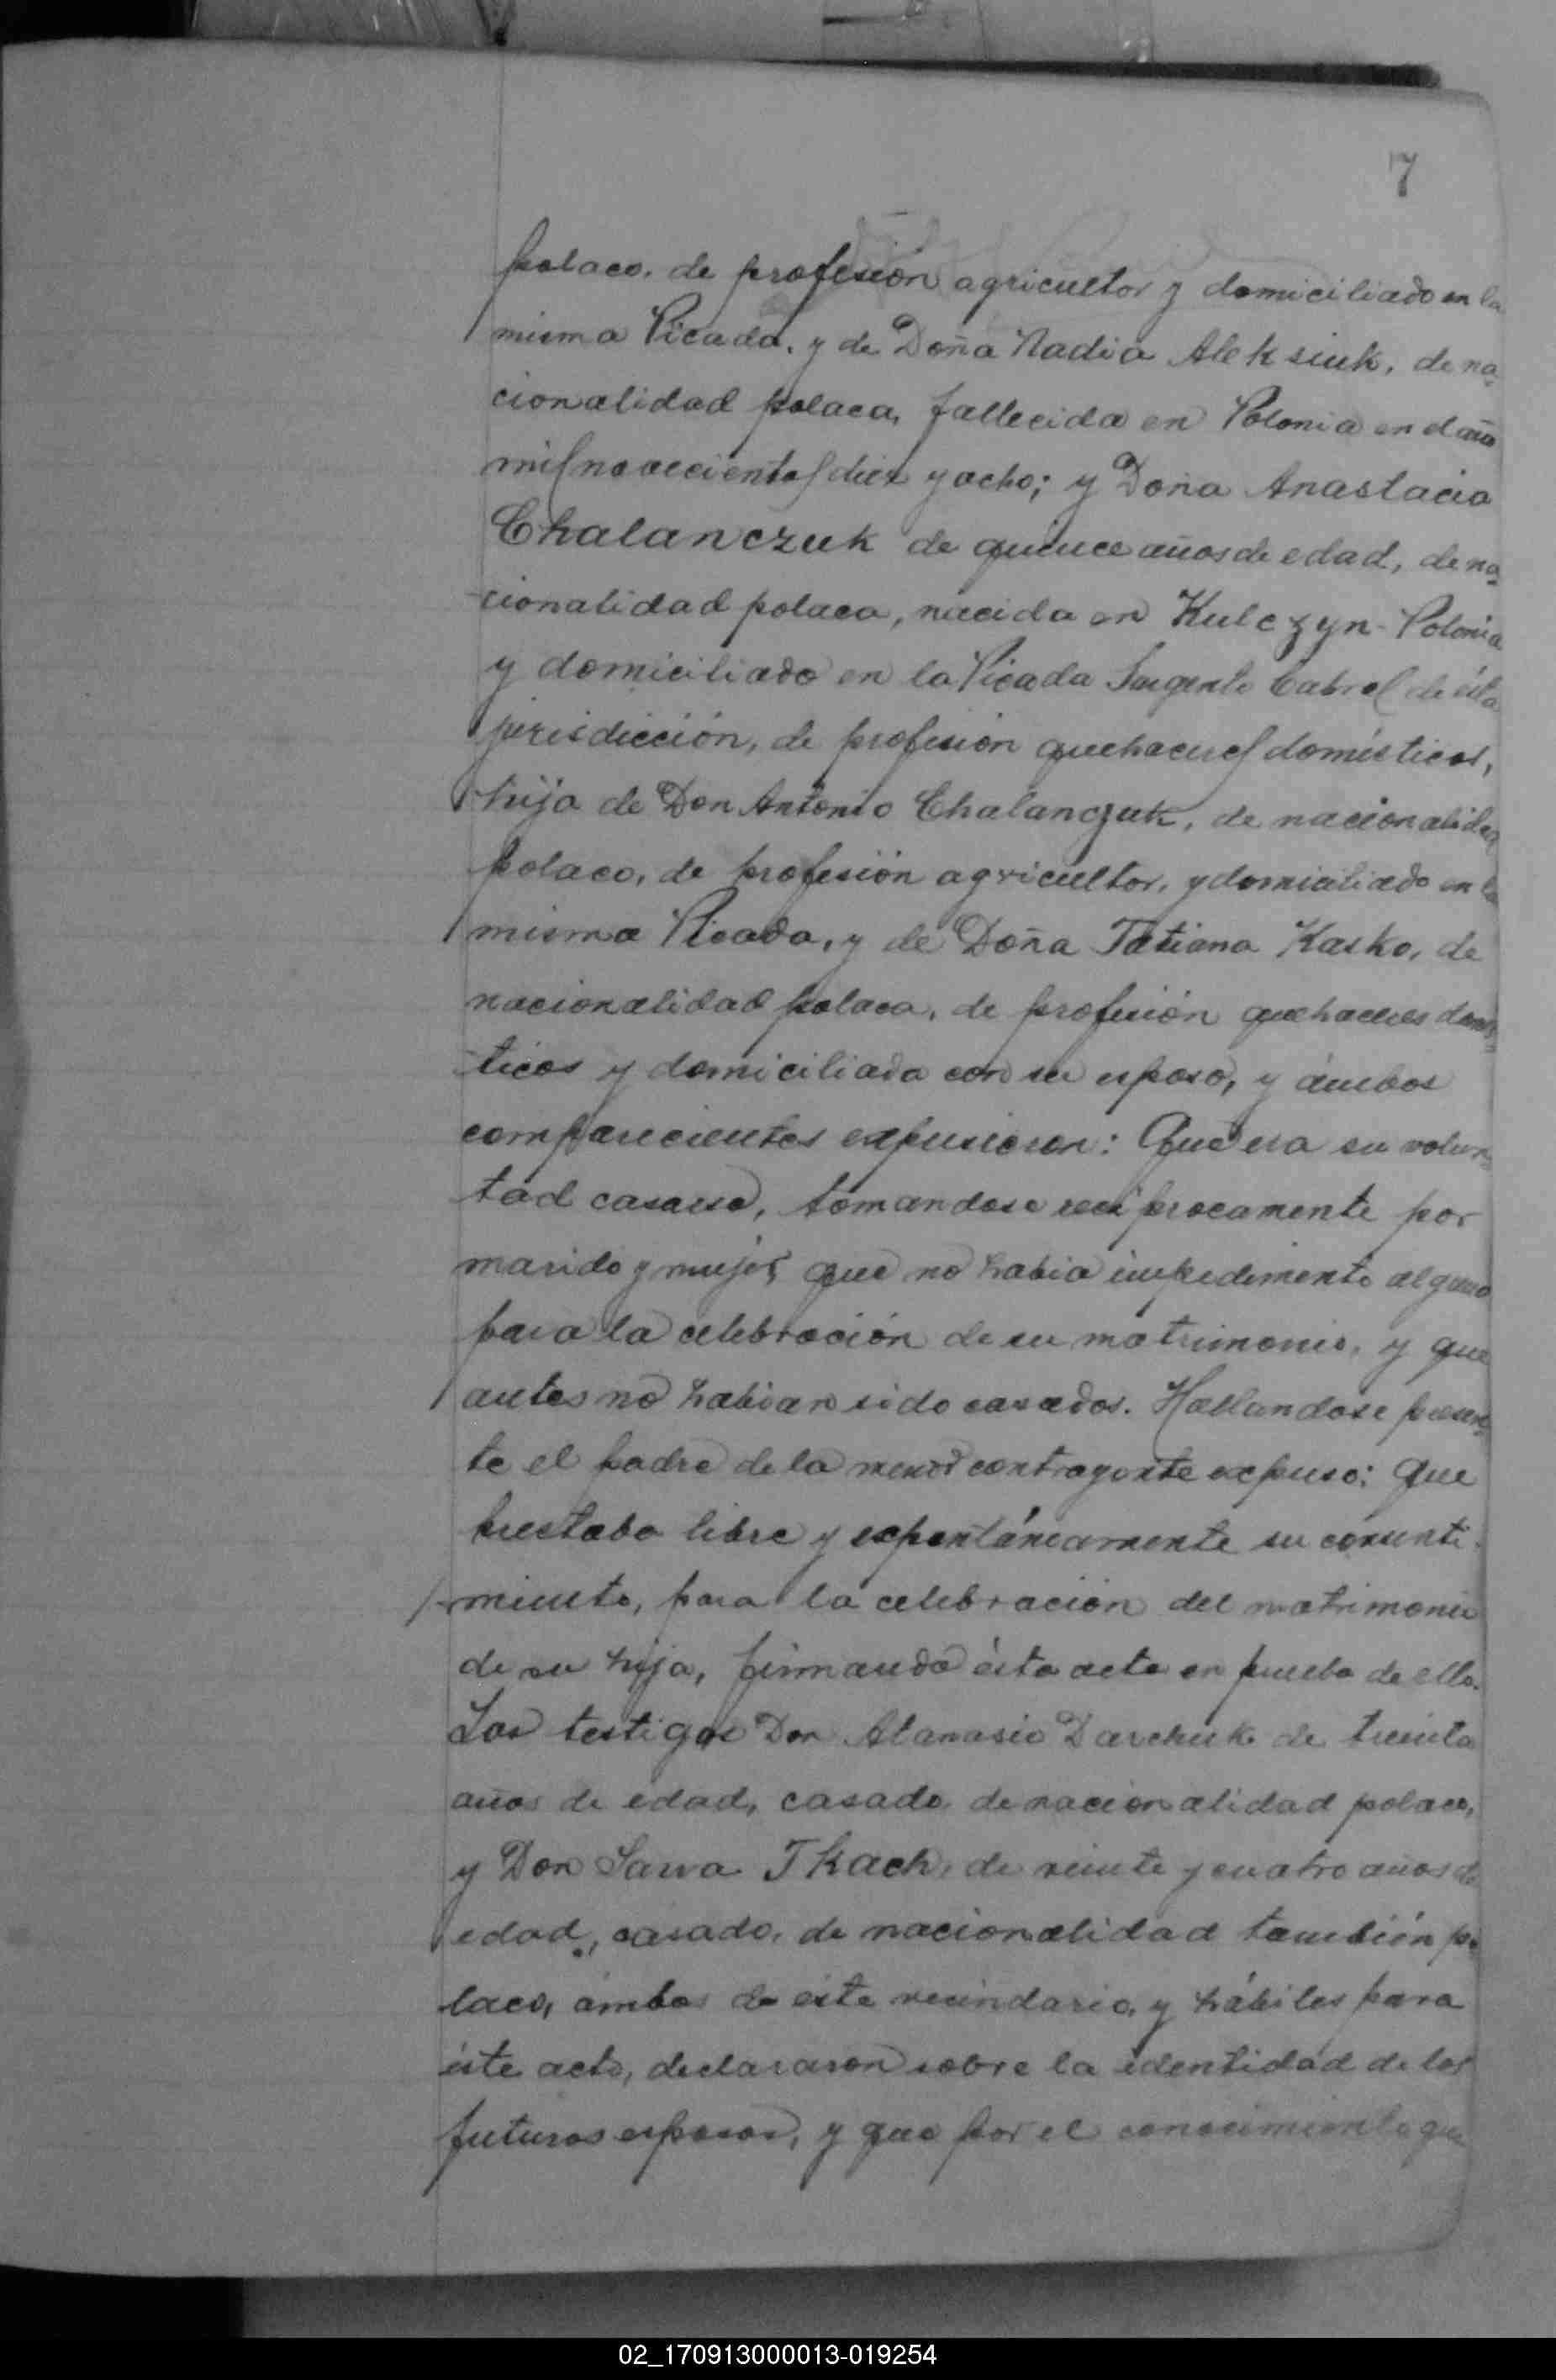 7
polaco, de profesión agricultor y domiciliado en la
misma Picada, y de Doña Nadia Aleksiuk, de na=
cionalidad polaca, fallecida en Polonia en el año
mil novecientos diez y ocho; y Doña Anastacia
Chalanczuk de quince años de edad, de na=
cionalidad polaca, nacida en Kulczyn - Polonia
y domiciliado en la Picada Sargento Cabral de ésta
jurisdicción, de profesión quehaceres domésticos,
hija de Don Antonio Chalanczuk, de nacionalidad
polaco, de profesión agricultor, y domiciliado en la
misma Picada, y de Doña Tatiana Kasko, de
nacionalidad polaca, de profesión quehaceres domés=
ticos y domiciliada con su esposo, y ámbos
comparecientes expusieron: Que era su volun=
tad casarse, tomandose reciprocamente por
marido y mujer, que no habia impedimento alguno
para la celebración de su matrimonio, y que
antes no habian sido casados. Hallandose presen=
te el padre de la menor contrayente expuso: que
prestaba libre y expontáneamente su consenti-
miento, para la celebración del matrimonio
de su hija, firmando ésta acta en prueba de ello.
Los testigos Don Atanasio Darchuk de treinta
años de edad, casado, de nacionalidad polaco,
y Don Sawa Tkach, de veinte y cuatro años de
edad, casado, de nacionalidad también po
laco, ambos de éste vecindario, y hábiles para
éste acto, declararon sobre la identidad de los
futuros esposos, y que por el conocimiento que
02_170913000013-019254